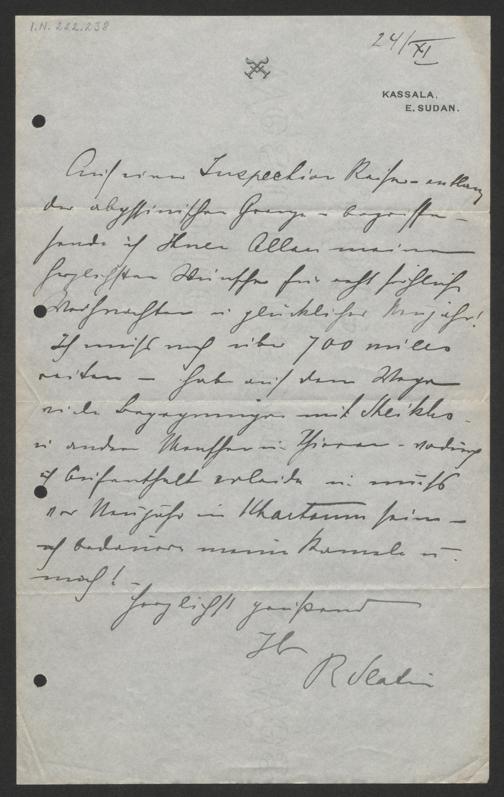 I.N. 222.238
24/XI
KASSALA.
E. SUDAN.
Auf einer Inspection Reise – entlang
der abyssinischen Grenze – begriffen –
sende ich Ihnen Allen meine
herzlichsten Wünsche für recht fröhliche
Weihnachten u glückliches Neujahr!
Ich muß noch über 700 miles
reiten – habe auf dem Wege
viele Begegnungen mit Sheikhs –
u andern Menschen u Thieren – wodurch
ich Aufenthalt erleide u muß
vor Neujahr in Khartoum sein –
ich bedauere meine Kamele u.
mich! –
Herzlichst grüßend
Ihr
R Slatin